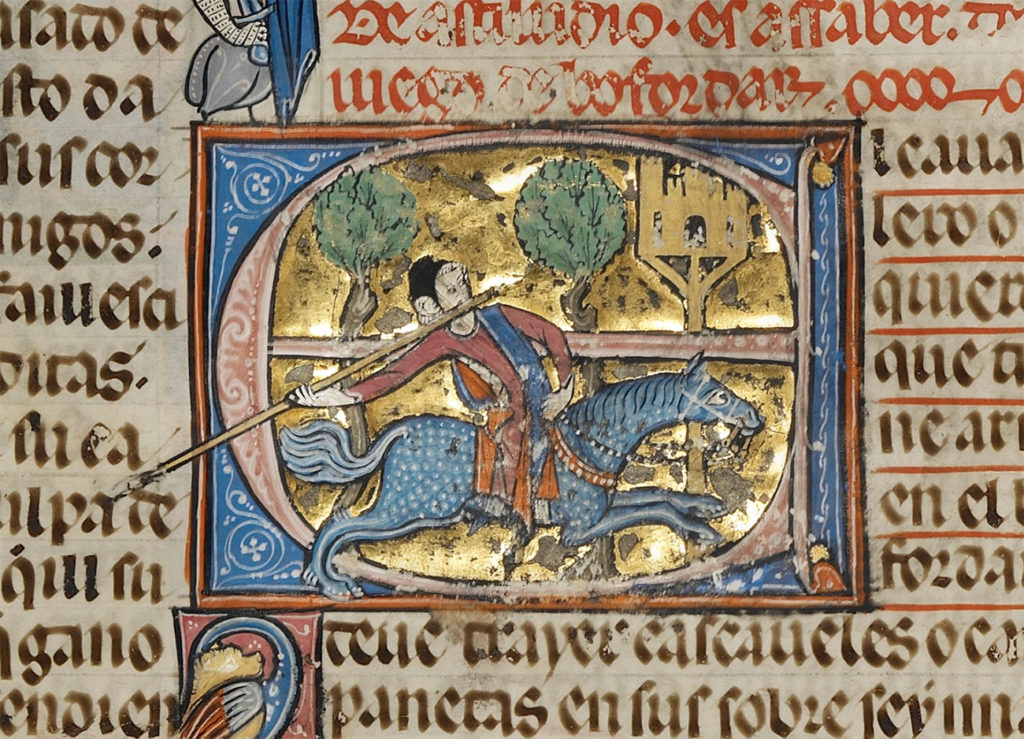 usado de
sto da
sus cor
migos:
ditas.
su ca
ulpa de
q̃ui su
gano
endien
De astiludio. es assaber. de
iuego de bofordar.
E l caua
lero o
quiere
que ti
ne ar
en el b
forda
deue trayer cascaueles o ca
panetas en sus sobre seynna